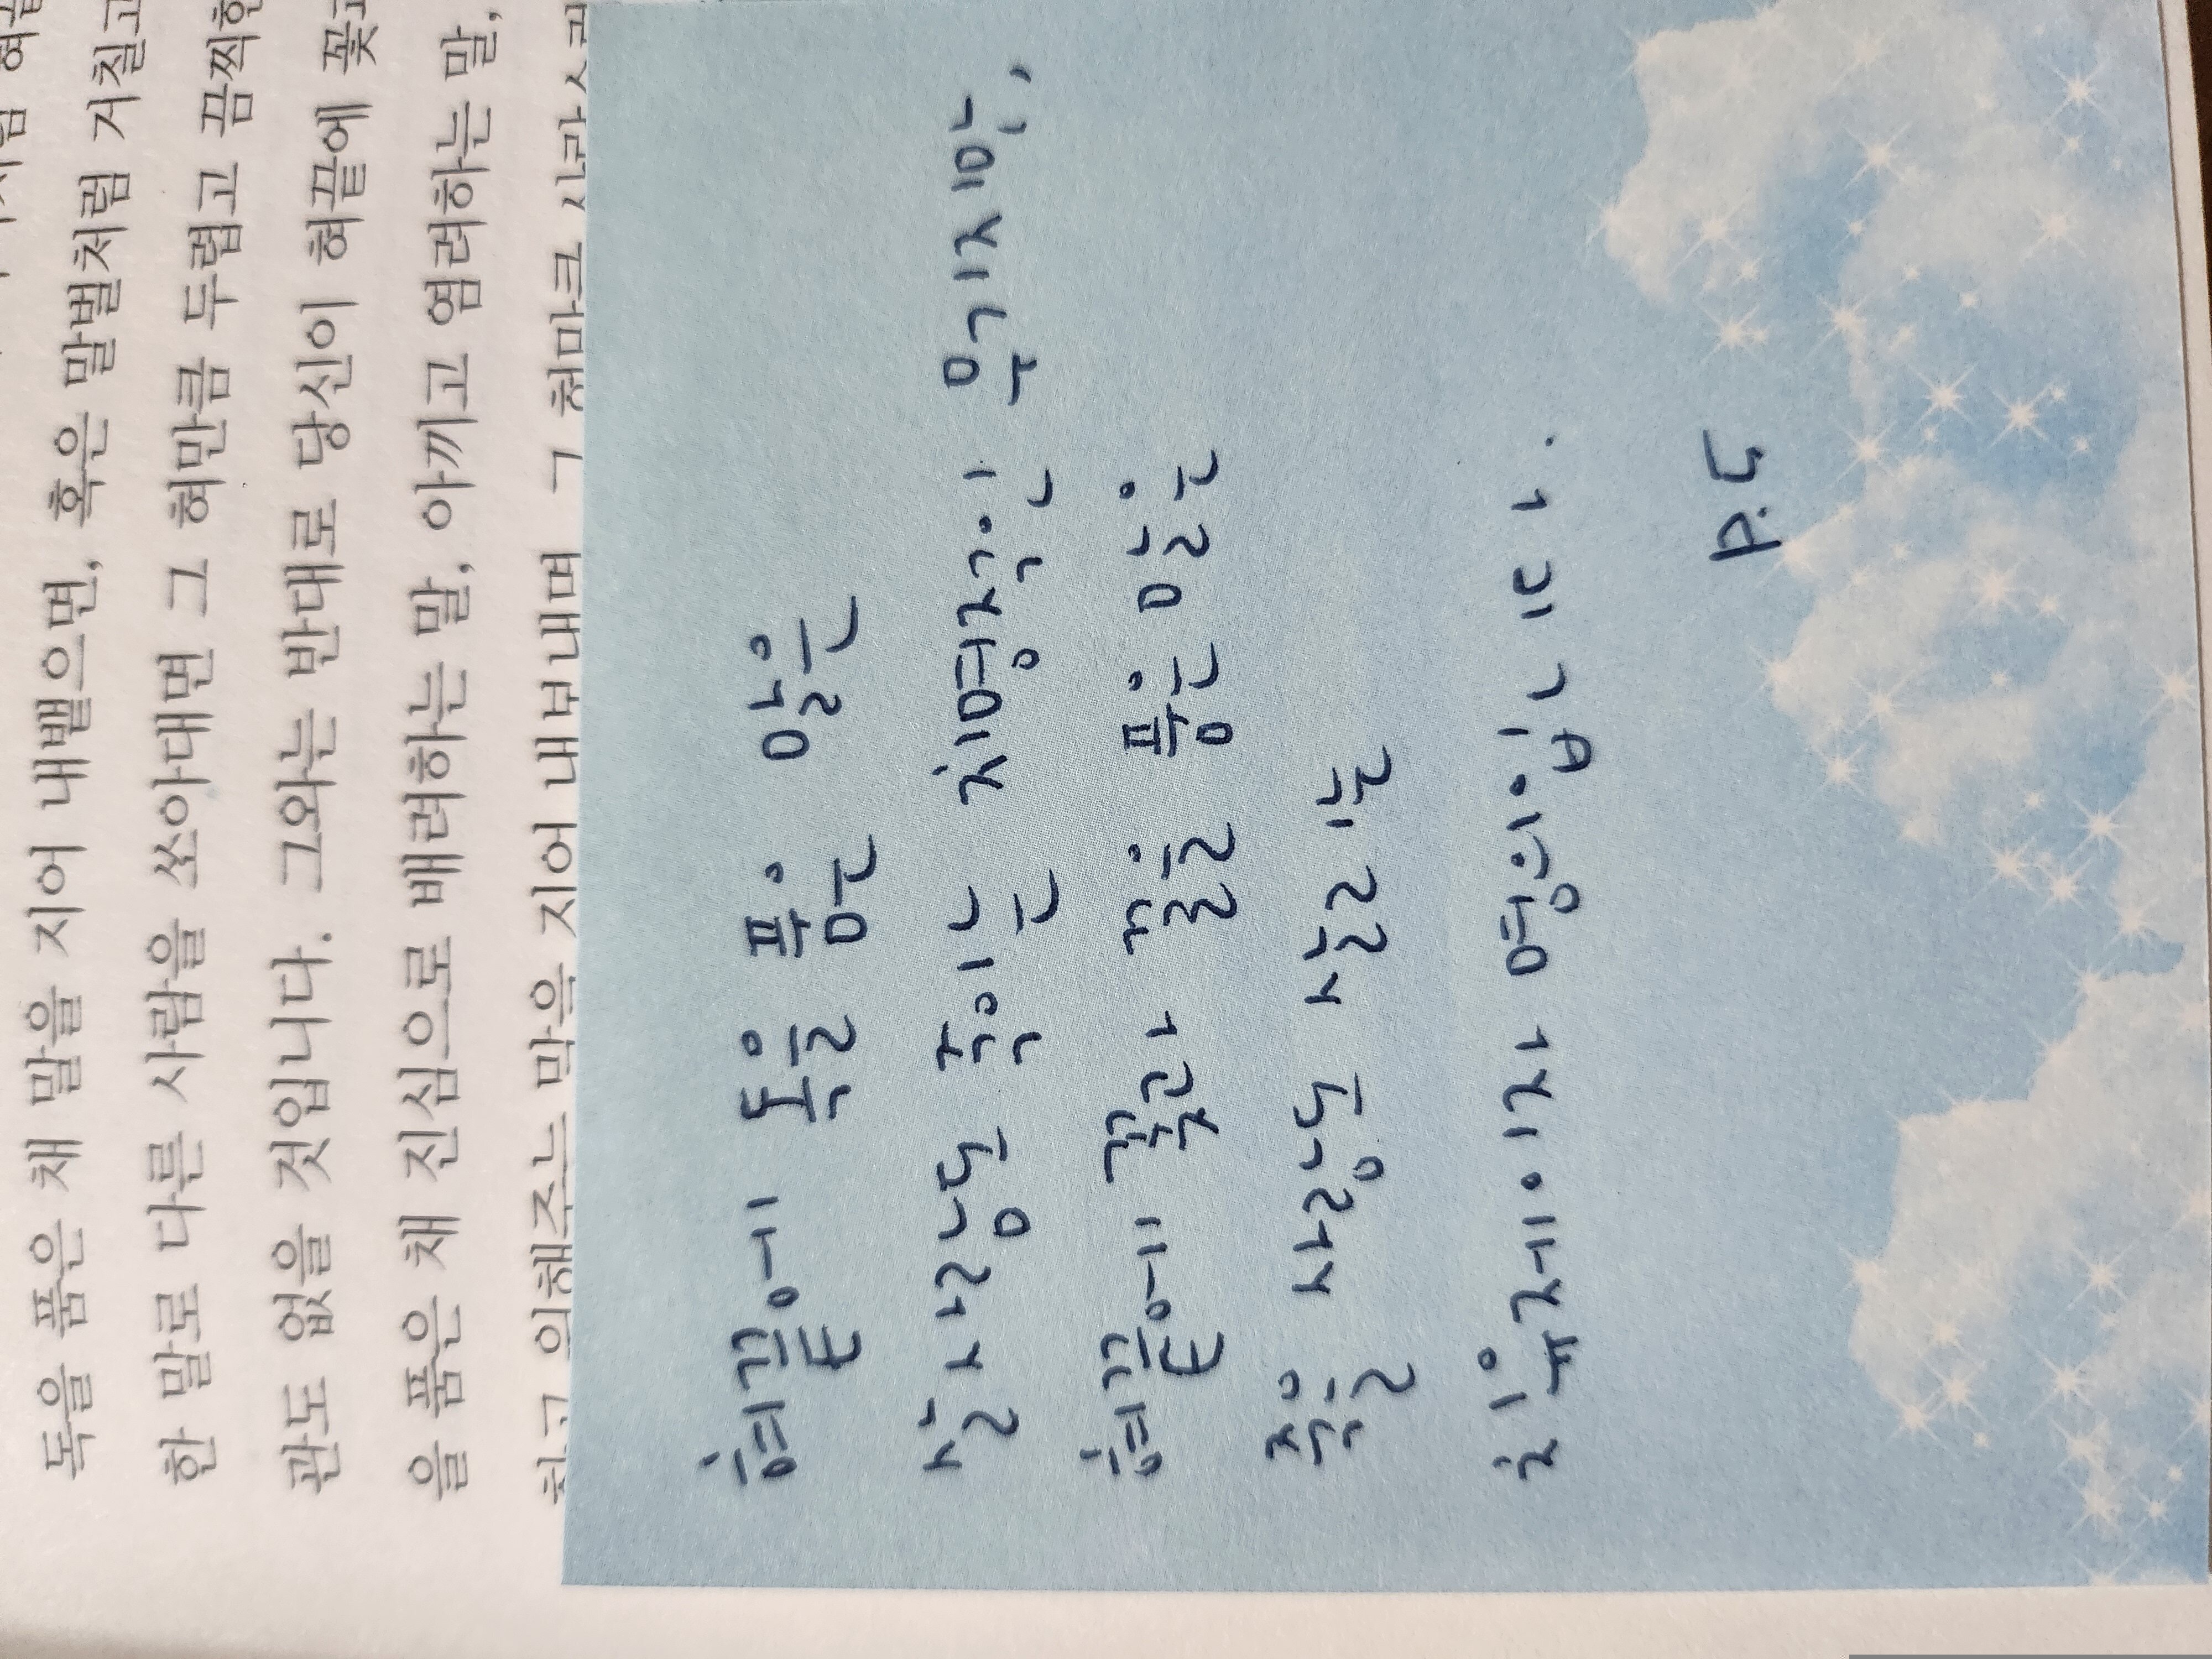 독을 품은 채 말을 지어 내뱉으면, 혹은 말벌처럼 거칠고
한 말로 다른 사람을 쏘아대면 그 혀만큼 두렵고 끔찍한
관도 없을 것입니다. 그와는 반대로 당신이 혀끝에 꽃과
을 품은 채 진심으로 배려하는 말, 아끼고 염려하는 말,
지어 내보내면 그 혀만큼
혀끝에 독을 품은 말은
산 사람도 죽이는 치명적인 무기지만,
혀끝에 꽃과 꿀을 품은 말은
죽은 사랑도 살리는
치유제이자 명심입니다.